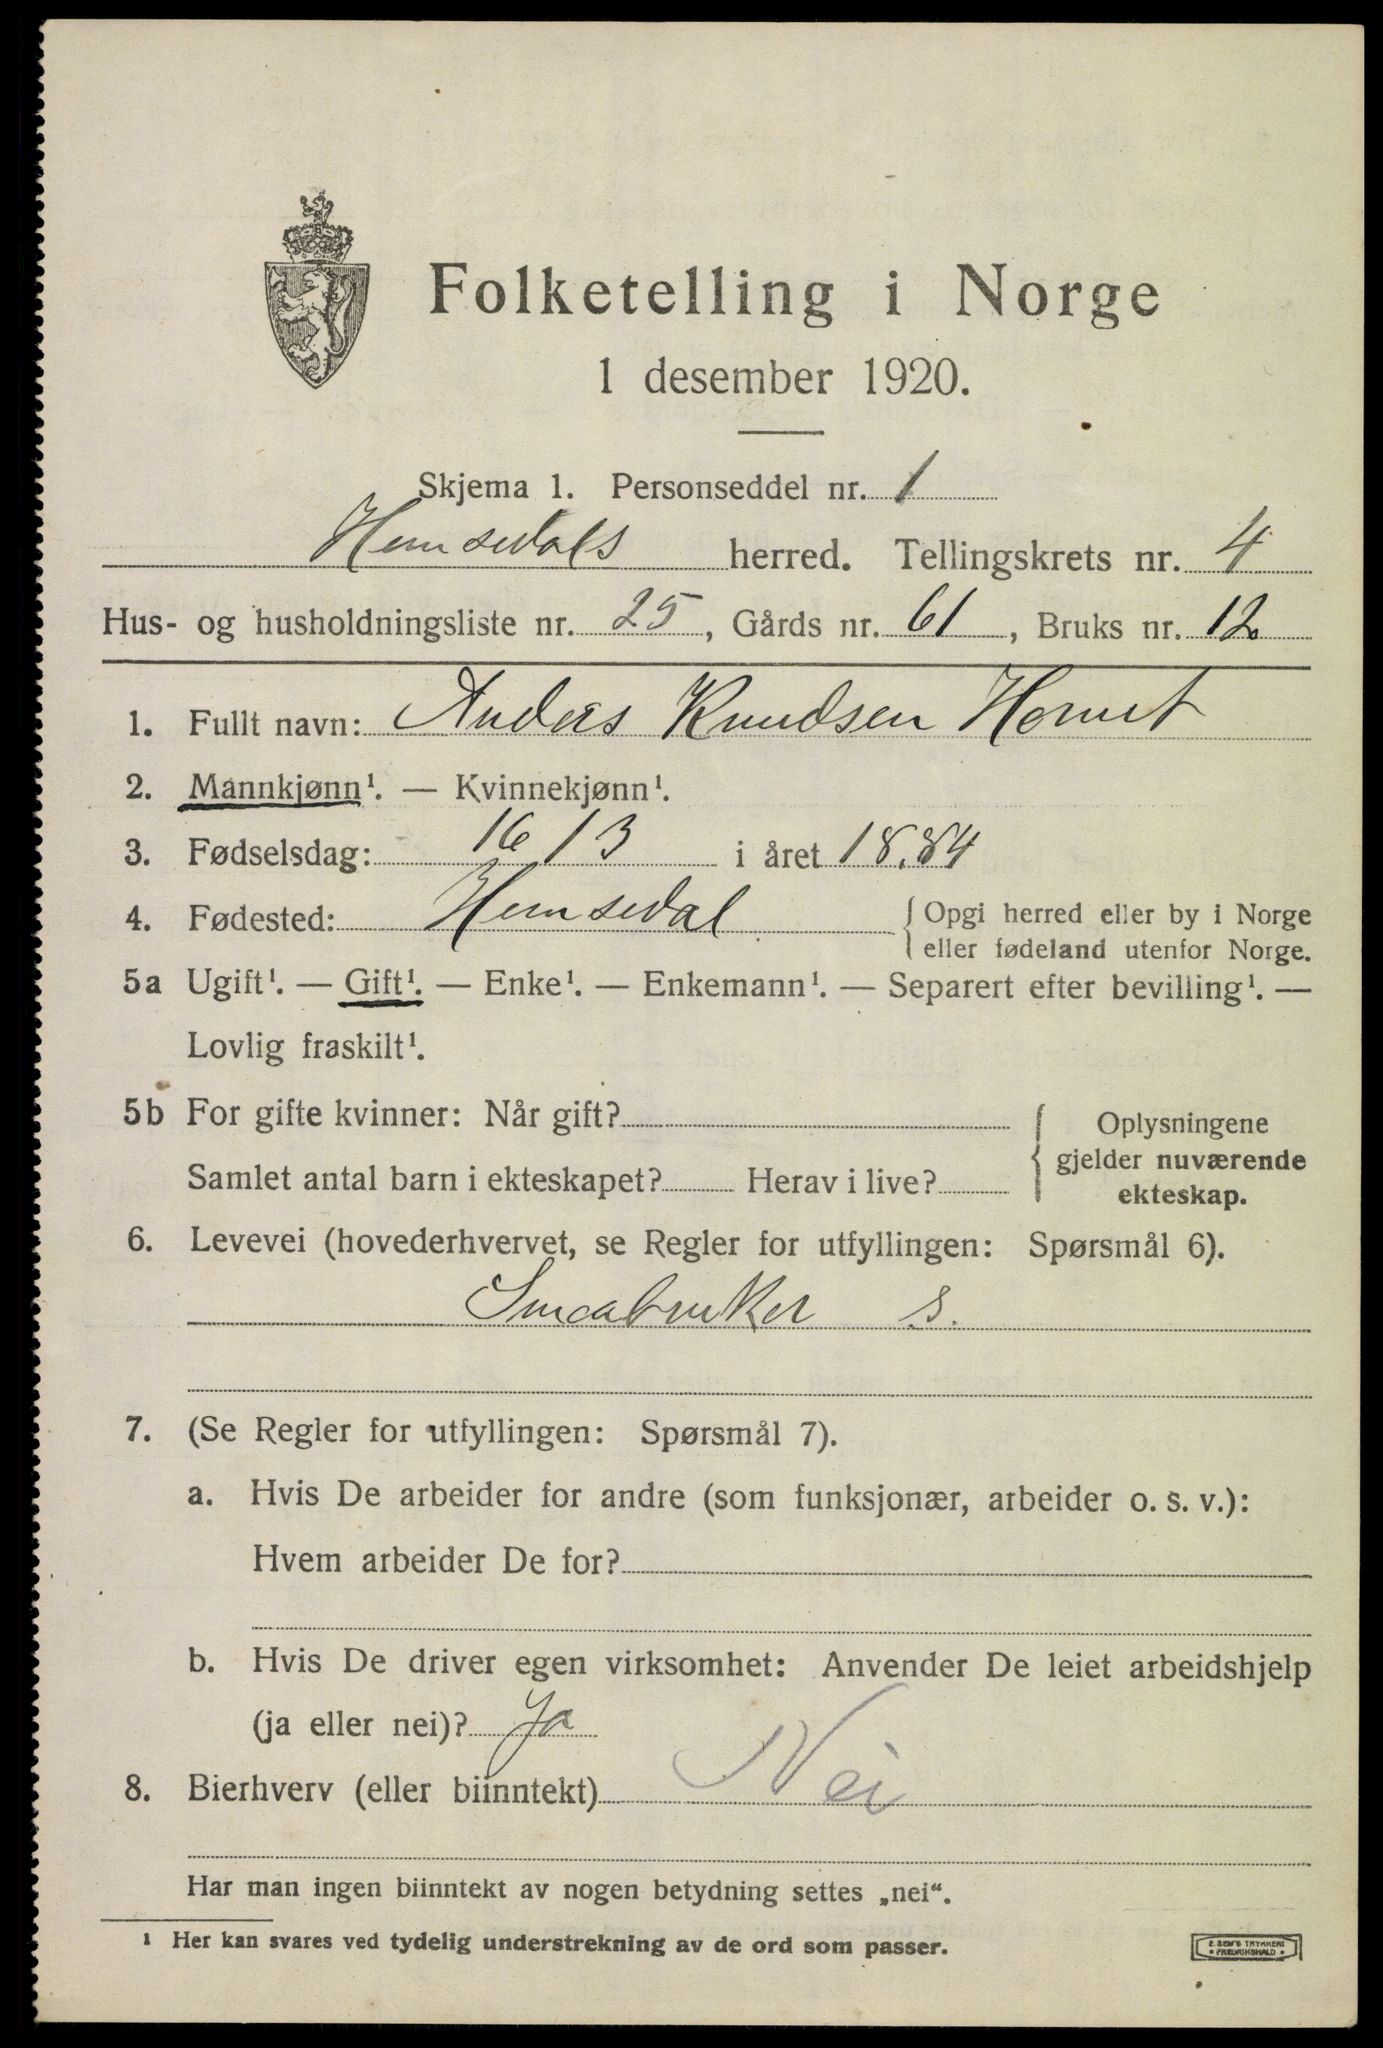 Folketelling i Norge
1 desember 1920.
Skjema 1. Personseddel nr. 1
Hemsedals herred. Tellingskrets nr. 4
Hus- og husholdningsliste nr. 25, Gårds nr. 61, Bruks nr. 12
1. Fullt navn: Anders Knudsen
2. Mannkjønn¹. — Kvinnekjønn¹.
3. Fødselsdag: 16/3 i året 1884
4. Fødested: Hemsedal {Opgi herred eller by i Norge
eller fødeland utenfor Norge.
5a Ugift¹. — Gift¹. — Enke¹. — Enkemann¹. — Separert efter bevilling¹. —
Lovlig fraskilt¹.
5b For gifte kvinner: Når gift? Oplysningene
gjelder nuværende
Samlet antal barn i ekteskapet? Herav i live? ekteskap.
6. Levevei (hovederhvervet, se Regler for utfyllingen: Spørsmål 6).
Smabruker s.
7. (Se Regler for utfyllingen: Spørsmål 7).
a. Hvis De arbeider for andre (som funksjonær, arbeider o. s. v.):
Hvem arbeider De for?
b. Hvis De driver egen virksomhet: Anvender De leiet arbeidshjelp
(ja eller nei)? Ja
8. Bierhverv (eller biinntekt) Nei
Har man ingen biinntekt av nogen betydning settes „nei“.
¹ Her kan svares ved tydelig understrekning av de ord som passer.
E. SEM'S TRYKKERI
• FREDRIKSHALD •